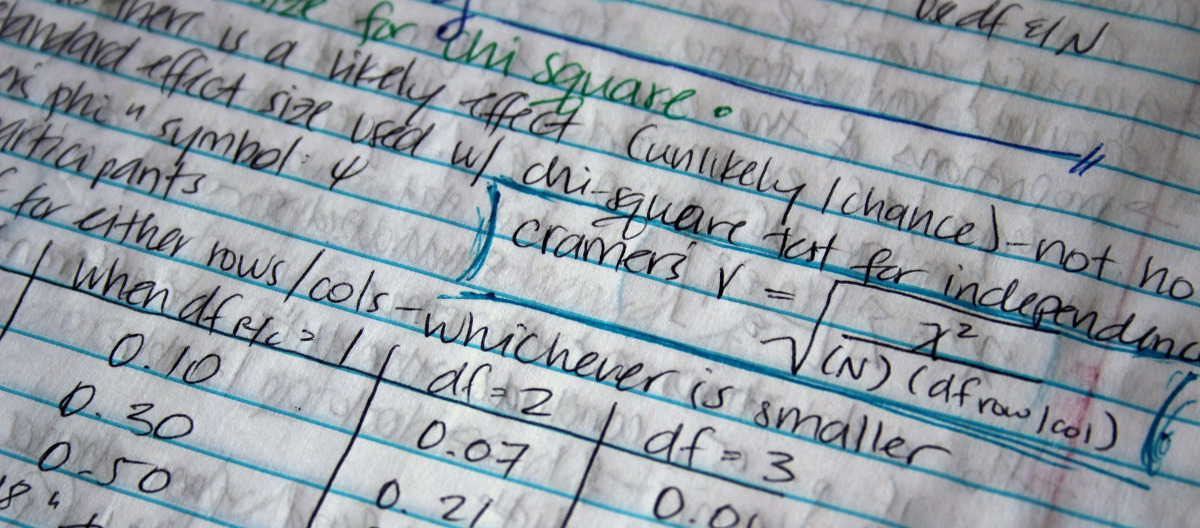 use df & N
size for chi square.
there is a likely effect (unlikely/chance) - not no
standard effect size used w/ chi-square test for independenc
phi" symbol: φ
cramers V = √ χ² / (N) (df row/col)
participants
for either rows/cols - whichever is smaller
when df R/C = 1 | df = 2 | df = 3
0.10 | 0.07 | 0.0
0.30 | 0.21
0.50